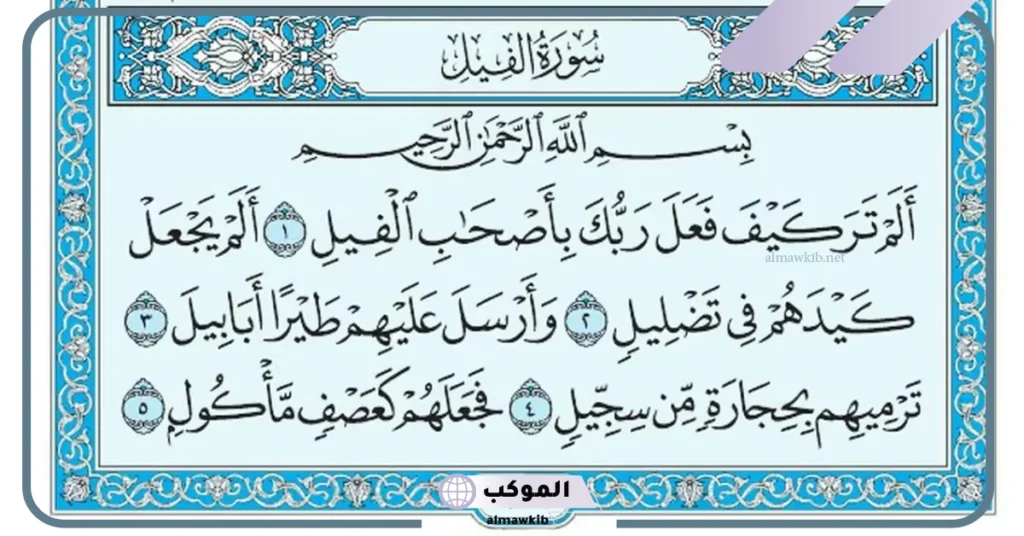 سُورَةُ الفِيلِ
بِسْمِ اللَّهِ الرَّحْمَٰنِ الرَّحِيمِ
أَلَمْ تَرَ كَيْفَ فَعَلَ رَبُّكَ بِأَصْحَٰبِ ٱلْفِيلِ ١ أَلَمْ يَجْعَلْ
almawkib.net
كَيْدَهُمْ فِى تَضْلِيلٍ ٢ وَأَرْسَلَ عَلَيْهِمْ طَيْرًا أَبَابِيلَ ٣
تَرْمِيهِم بِحِجَارَةٍ مِّن سِجِّيلٍ ٤ فَجَعَلَهُمْ كَعَصْفٍ مَّأْكُولٍ ٥
الموكب
almawkib